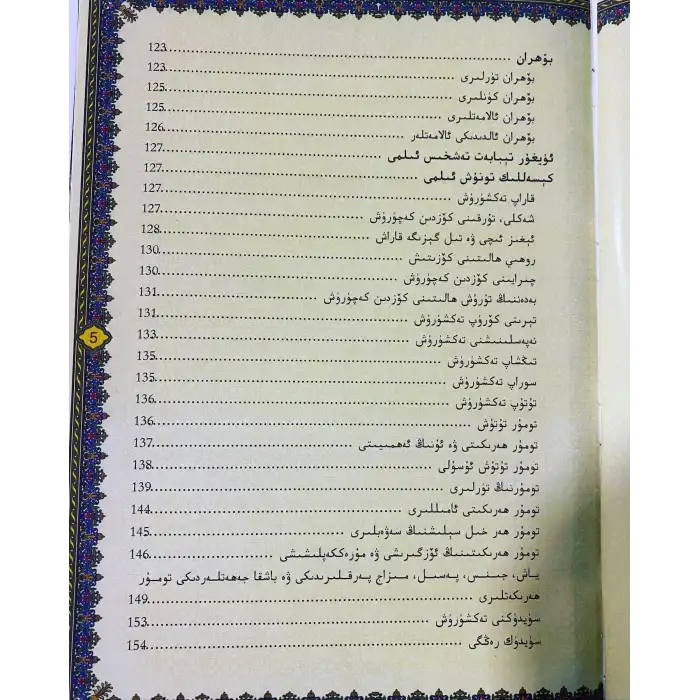 بۆھران ........ 123
بۆھران تۈرلىرى ........ 123
بۆھران كۈنلىرى ........ 125
بۆھران ئالامەتلىرى ........ 125
بۆھران ئالدىدىكى ئالامەتلەر ........ 126
ئۇيغۇر تېبابەت تەشخىس ئىلمى ........ 127
كېسەللىك تونۇش ئىلمى ........ 127
قاراپ تەكشۈرۈش ........ 127
شەكلى، تۇرقىنى كۆزدىن كەچۈرۈش ........ 127
ئېغىز ئىچى ۋە تىل گېزىگە قاراش ........ 128
روھىي ھالىتىنى كۆزىتىش ........ 130
چىرايىنى كۆزدىن كەچۈرۈش ........ 130
بەدەننىڭ تۇرۇش ھالىتىنى كۆزدىن كەچۈرۈش ........ 131
تېرىنى كۆرۈپ تەكشۈرۈش ........ 131
نەپەسلىنىشنى تەكشۈرۈش ........ 133
تىڭشاپ تەكشۈرۈش ........ 135
سوراپ تەكشۈرۈش ........ 135
تۇتۇپ تەكشۈرۈش ........ 136
تومۇر تۇتۇش ........ 136
تومۇر ھەرىكىتى ۋە ئۇنىڭ ئەھمىيىتى ........ 137
تومۇر تۇتۇش ئۇسۇلى ........ 138
تومۇرنىڭ تۈرلىرى ........ 139
تومۇر ھەرىكىتى ئامىللىرى ........ 144
تومۇر ھەر خىل سېلىشنىڭ سەۋەبلىرى ........ 145
تومۇر ھەرىكىتىنىڭ ئۆزگىرىشى ۋە مۇرەككەپلىشىشى ........ 146
ياش، جىنس، پەسىل، مىزاج پەرقلىرىدىكى ۋە باشقا جەھەتلەردىكى تومۇر
ھەرىكەتلىرى ........ 149
سۈيدۈكنى تەكشۈرۈش ........ 153
سۈيدۈك رەڭگى ........ 154
5